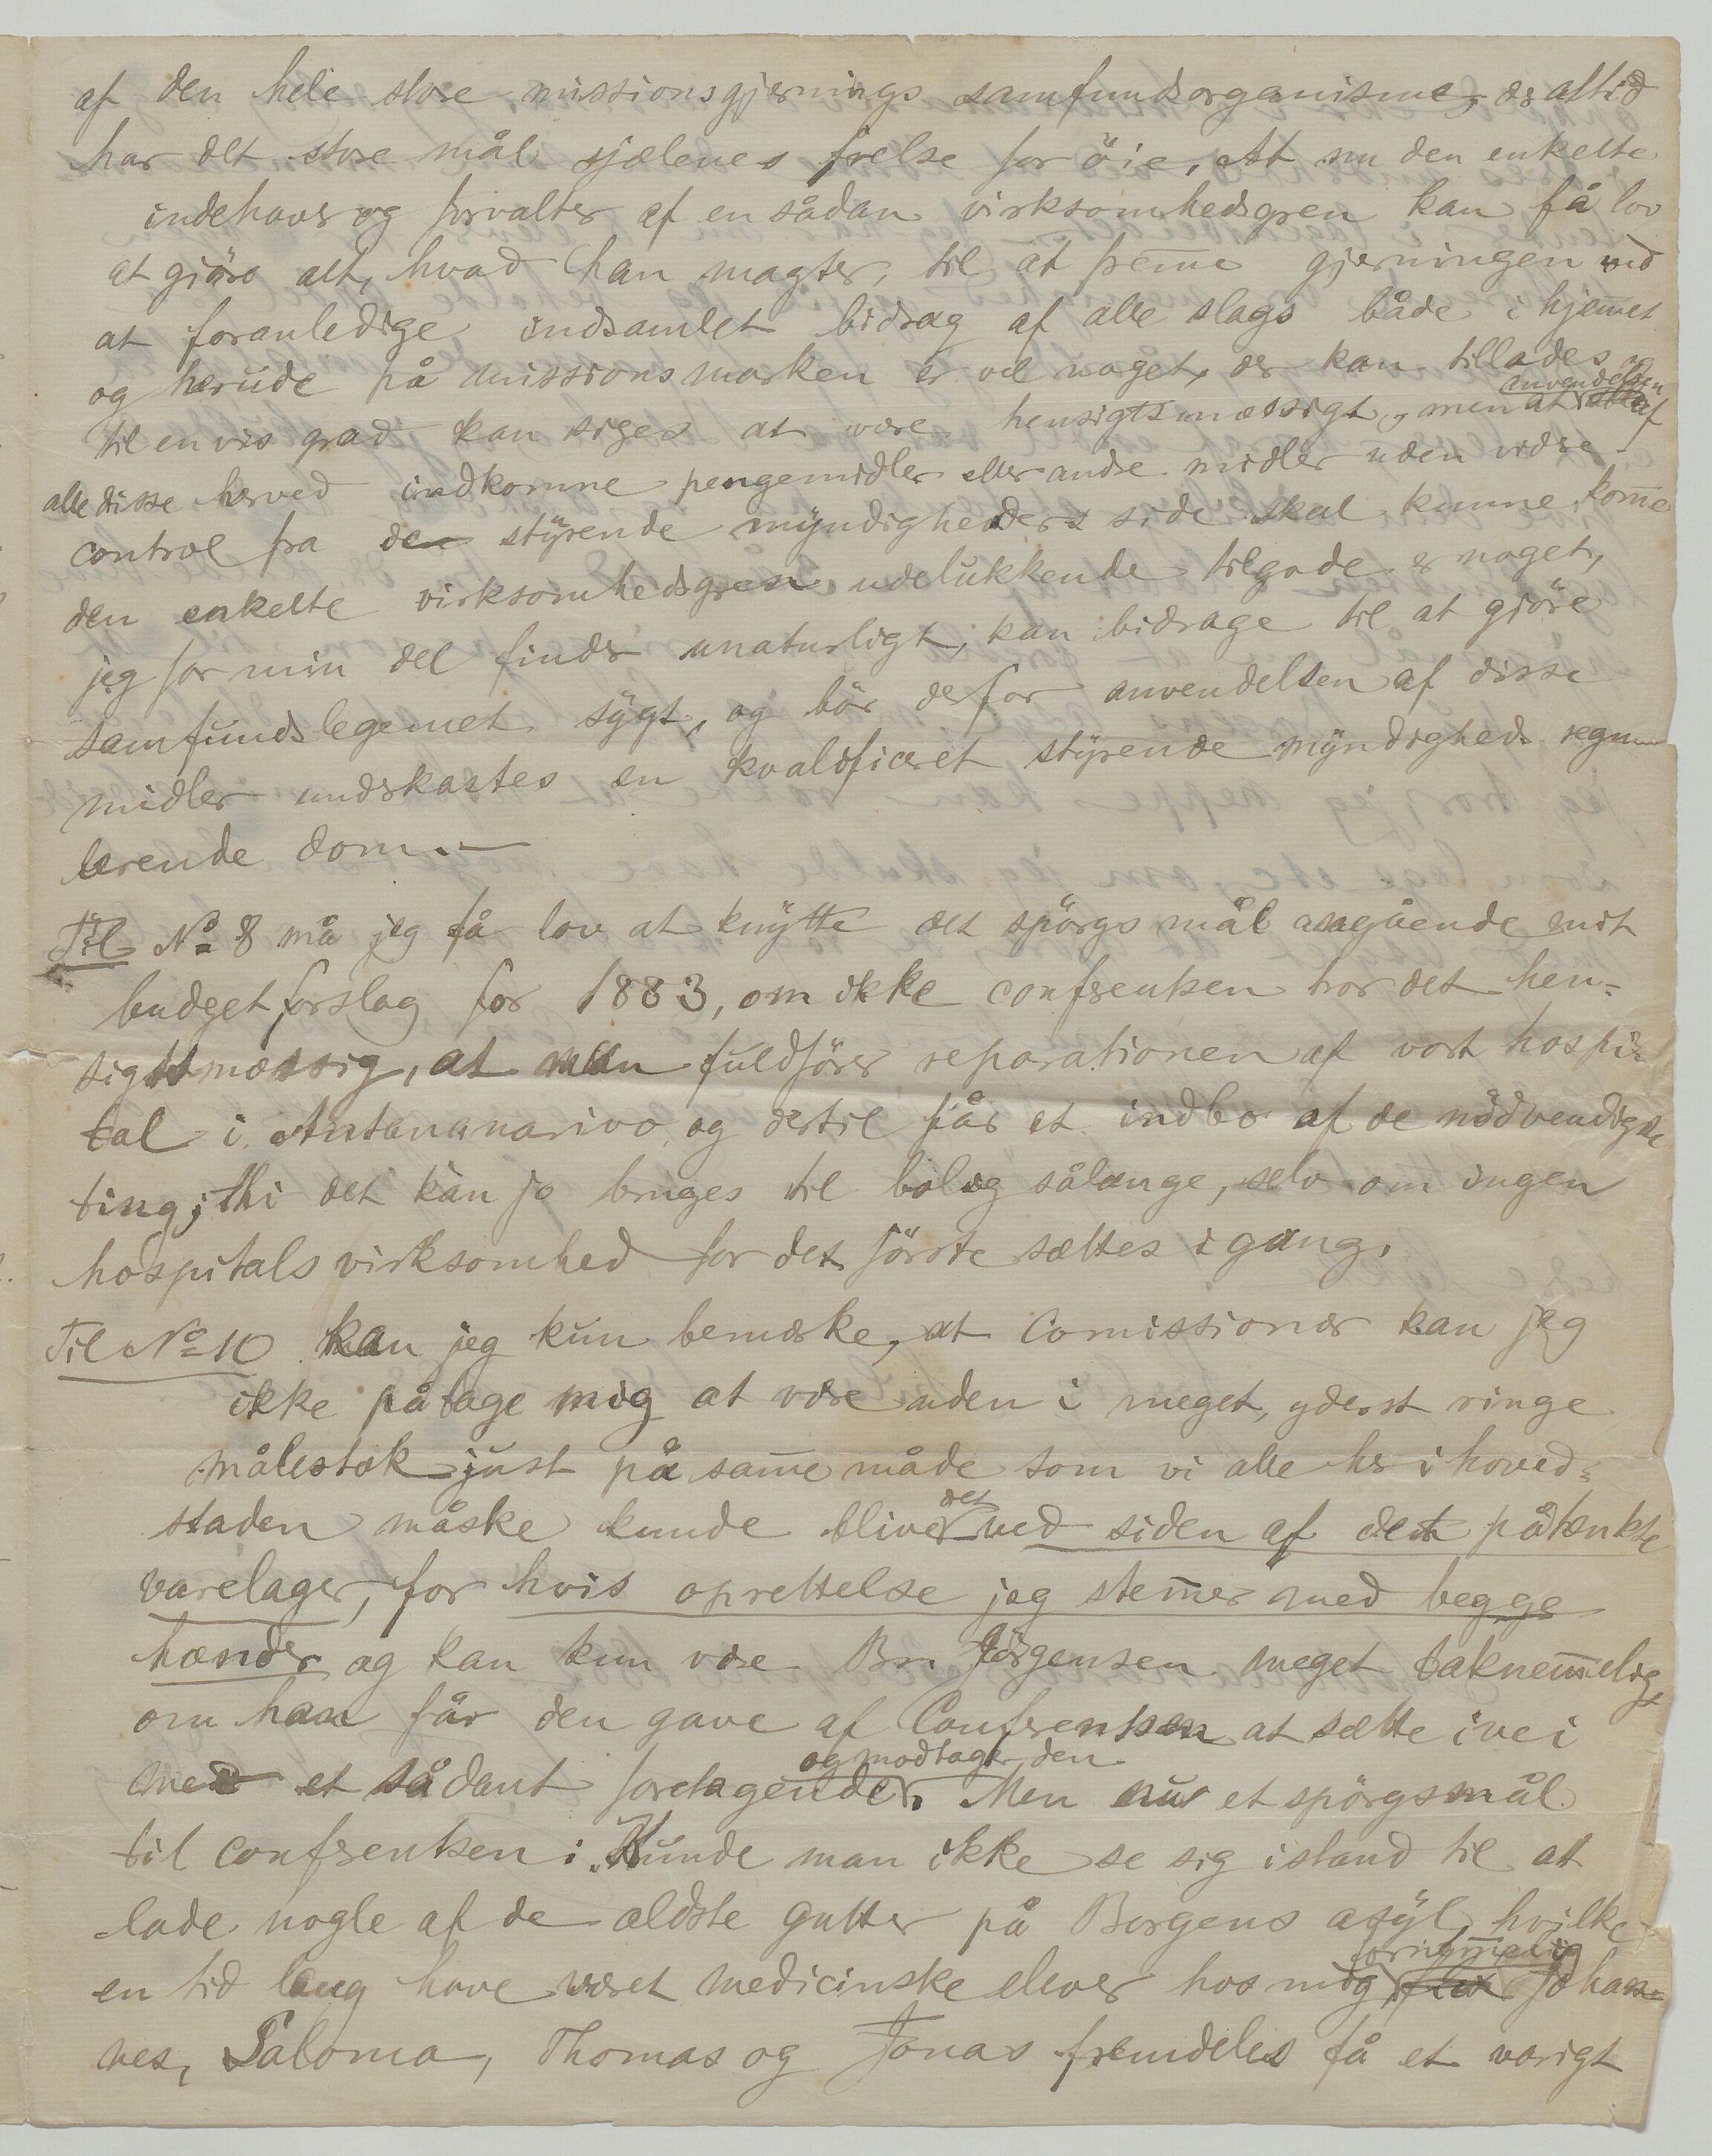 af den hele store missionsgjernings samfundsorganisme, der altid
har det store mål sjælenes frelse for öie. At nu den enkelte
indehaver og forvalter af en sådan virksomhedsgren kan få lov
at gjöre alt, hvad han magter, til at frem̅e gjerningen ved
at foranledige indsamlet bidrag af alle slags både i hjem̅et
og herude på missionsmarken er vel noget, der kan tillades og
til en vis grad kan siges at være hensigtsmæssigt, men at anvendelsen af
alle disse herved indkomne pengemidler eller andre midler uden vidre
control fra den styrende myndigheders side skal kunne kom̅e
den enkelte virksomhedsgren udelukkende tilgode er noget,
jeg for min del finder unaturligt, kan bidrage til at gjöre
samfundslegemet sygt, og bör derfor anvendelsen af disse
midler underkastes en kvalificeret styrende myndigheds regu-
lerende dom. —
Til No 8 må jeg få lov at knytte det spörgsmål angående mit
budgetforslag for 1883, om ikke conferentsen tror det hen-
sigtsmæssig, at man fuldförer reparationen af vort hospi-
tal i Antananarivo og dertil får et indbo af de nödvendigste
ting; thi det kan jo bruges til bolig sålænge, selv om ingen
hospitalsvirksomhed for det förste sættes igang.
Til No 10 kan jeg kun bemærke, at Comissionær kan jeg
ikke påtage mig at være uden i meget, yderst ringe
målestok just på sam̅e måde som vi alle her i hoved-
staden måske kunde blive det ved siden af det påtænkte
varelager, for hvis oprettelse jeg stem̅er med begge
hænder og kan kun være Br. Jörgensen meget taknem̅elig,
om han får den gave af Conferentsen at sætte ivei
med et sådant foretagende og modtager den. Men nu et spörgsmål
til conferentsen: Kunde man ikke se sig istand til at
lade nogle af de ældste gutter på Borgens asyl, hvilke
en tid lang have været medicinske elever hos mig, fornem̅elig Johan-
nes, Saloma, Thomas og Jonas fremdeles få et varigt